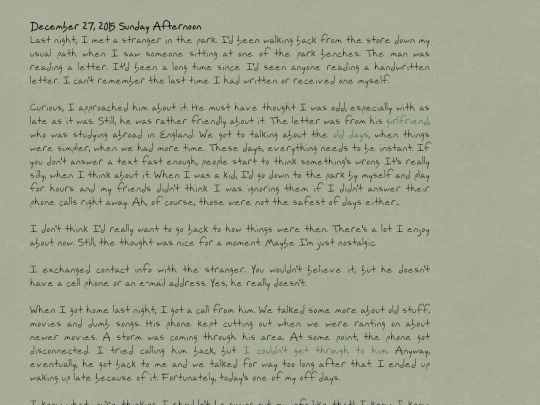 December 27, 2015 Sunday Afternoon
Last night, I met a stranger in the park. I'd been walking back from the store down my
usual path when I saw someone sitting at one of the park benches. The man was
reading a letter. It'd been a long time since I'd seen anyone reading a handwritten
letter. I can't remember the last time I had written or received one myself.
Curious, I approached him about it. He must have thought I was odd, especially with as
late as it was. Still, he was rather friendly about it. The letter was from his girlfriend,
who was studying abroad in England. We got to talking about the old days, when things
were simpler, when we had more time. These days, everything needs to be instant. If
you don't answer a text fast enough, people start to think something's wrong. It's really
silly, when I think about it. When I was a kid, I'd go down to the park by myself and play
for hours and my friends didn't think I was ignoring them if I didn't answer their
phone calls right away. Ah, of course, those were not the safest of days either...
I don't think I'd really want to go back to how things were then. There's a lot I enjoy
about now. Still, the thought was nice for a moment. Maybe I'm just nostalgic.
I exchanged contact info with the stranger. You wouldn't believe it, but he doesn't
have a cell phone or an e-mail address. Yes, he really doesn't.
When I got home last night, I got a call from him. We talked some more about old stuff,
movies and dumb songs. His phone kept cutting out when we were ranting on about
newer movies. A storm was coming through his area. At some point, the phone got
disconnected. I tried calling him back, but I couldn't get through to him. Anyway,
eventually, he got back to me and we talked for way too long after that. I ended up
waking up late because of it. Fortunately, today's one of my off days.